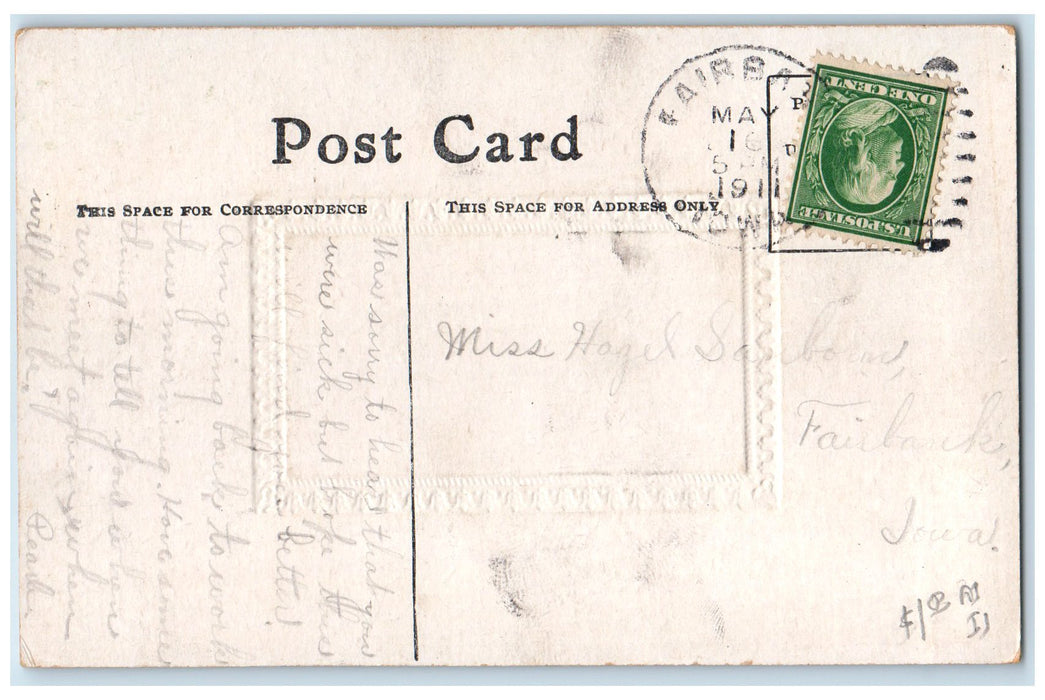 Post Card
THIS SPACE FOR CORRESPONDENCE
THIS SPACE FOR ADDRESS ONLY
FAIRBA
MAY
16
5 PM
1911
IOWA
U.S. POSTAGE
ONE CENT
Miss Hazel Sanborn,
Fairbank,
Iowa.
Was sorry to hear that you
were sick but hope this
will find you
better!
Am going back to work
this morning. Have some
thing to tell you when
we meet again & when
will that be?